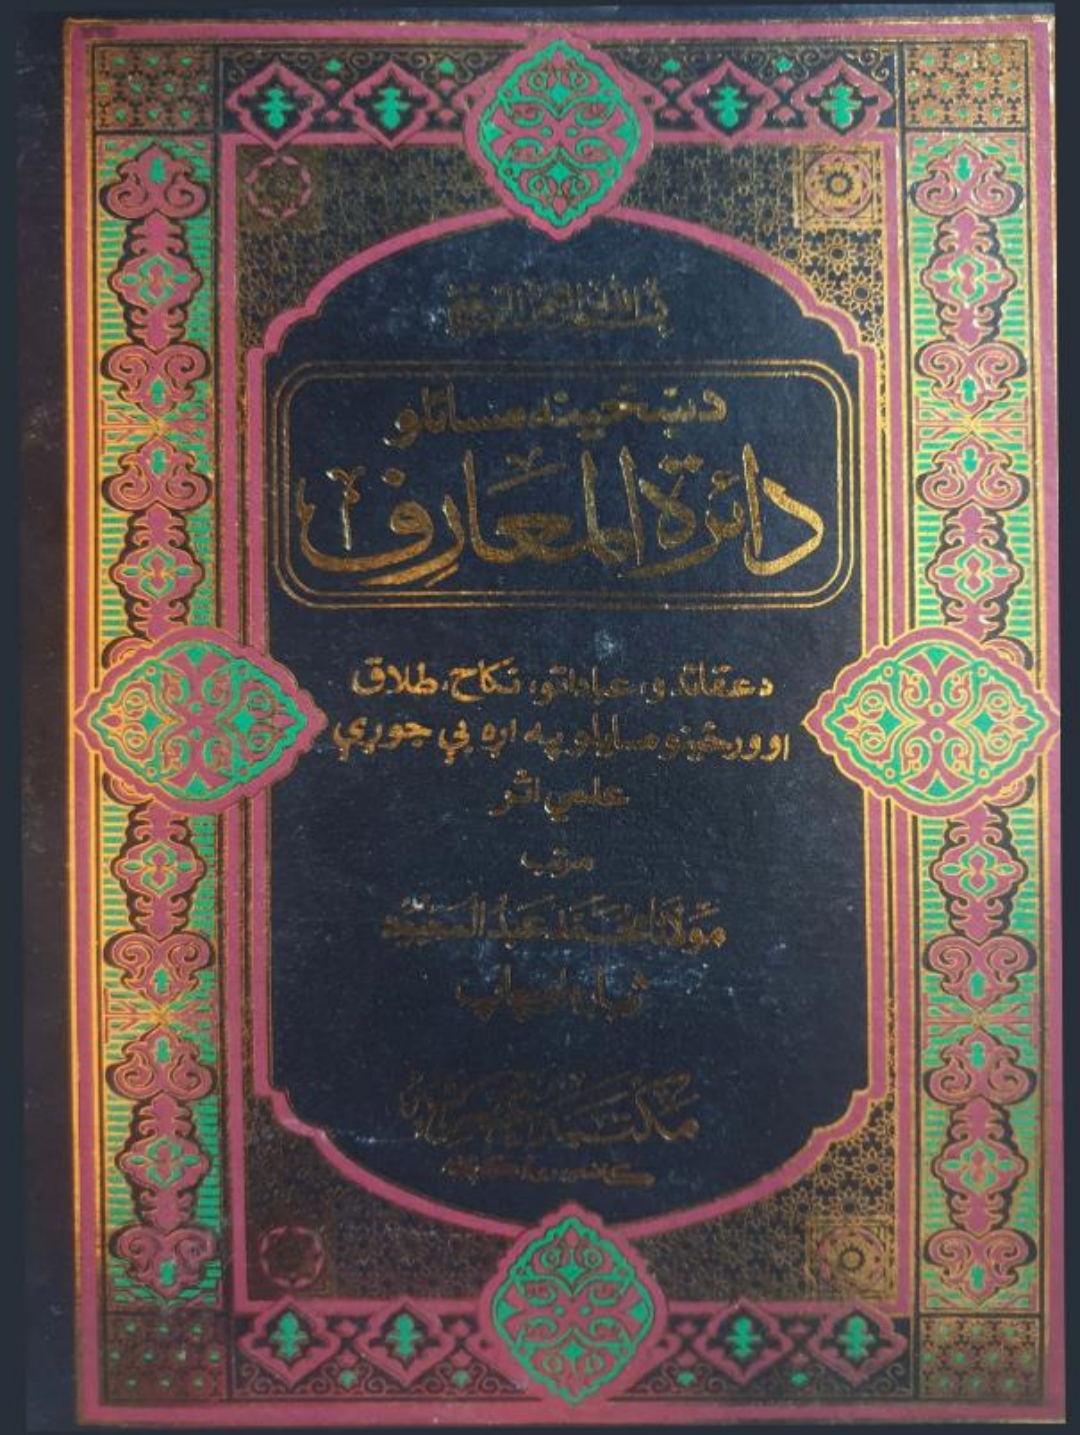 بسم الله الرحمن الرحيم
د ښځينه مسائلو
دائرة المعارف
د عقائدو، عباداتو، نکاح، طلاق
او ورځينو مسايلو په اړه بې جوړې
علمي اثر
مرتب
مولانا محمد عبد المعبود
ژباړه
مکتبه